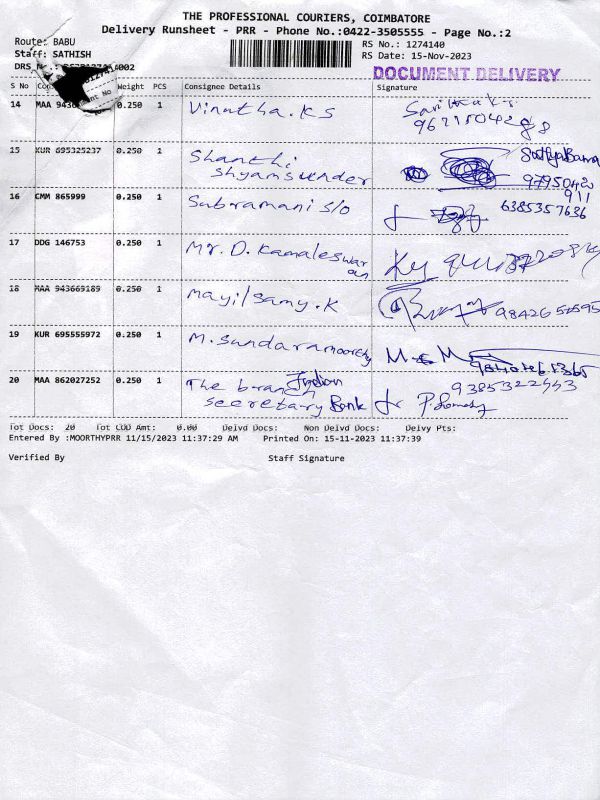 THE PROFESSIONAL COURIERS, COIMBATORE
Delivery Runsheet - PRR - Phone No.:0422-3505555 - Page No.:2
Route: BABU
RS No.: 1274140
Staff: SATHISH
RS Date: 15-Nov-2023
DRS
DOCUMENT DELIVERY
S No Weight PCS Consignee Details Signature
14 MAA 0.250 1 Vinutha.KS
15 KUR 695325237 0.250 1 Shanthi
Shyamsunder
97950420
911
16 CMM 865999 0.250 1 Subramani S/o 6385357636
17 DDG 146753 0.250 1 Mr. D. Kamaleswar
an
18 MAA 943669189 0.250 1 Mayilsamy.K
19 KUR 695555972 0.250 1 M. Sundaramoorthy
20 MAA 862027252 0.250 1 The branch Indian
Secretary Bank
Tot Docs: 20 Tot COD Amt: 0.00 Delvd Docs: Non Delvd Docs: Delvy Pts:
Entered By :MOORTHYPRR 11/15/2023 11:37:29 AM Printed On: 15-11-2023 11:37:39
Verified By Staff Signature